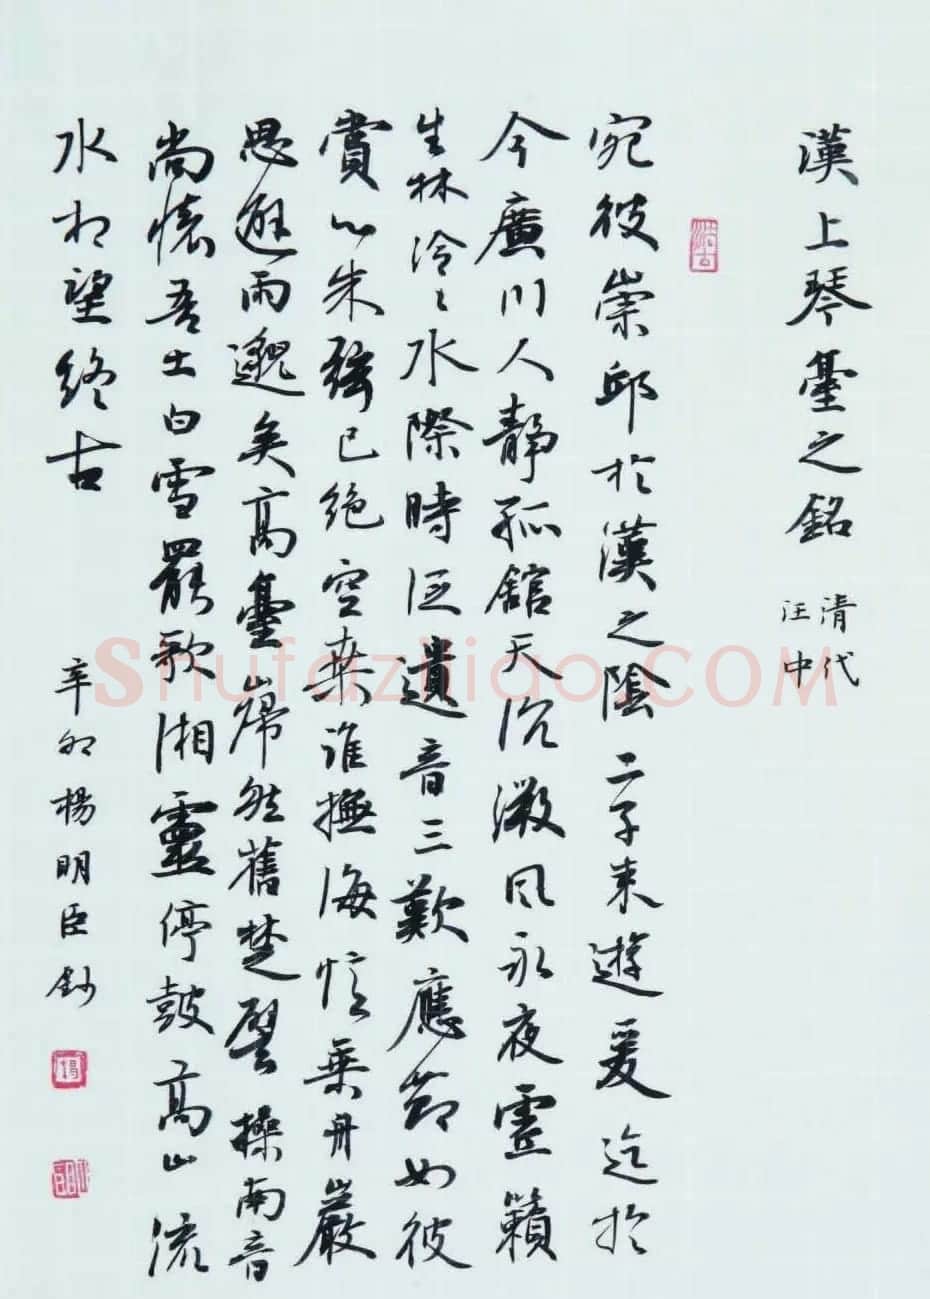 漢上琴臺之銘
清代
汪中
宛彼崇邱於漢之陰二子來遊爰迄於
今廣川人靜孤館天沉微風永夜虛籟
生林泠々水際時泛遺音三歎應節如彼
賞心朱弦已絕空桑誰撫海憶乘舟巖
思避雨邈矣高臺巋然舊楚譬操南音
尚懷吾土白雪罷歌湘靈停鼓高山流
水相望終古
辛卯楊明臣鈔
Shufaziliao.COM